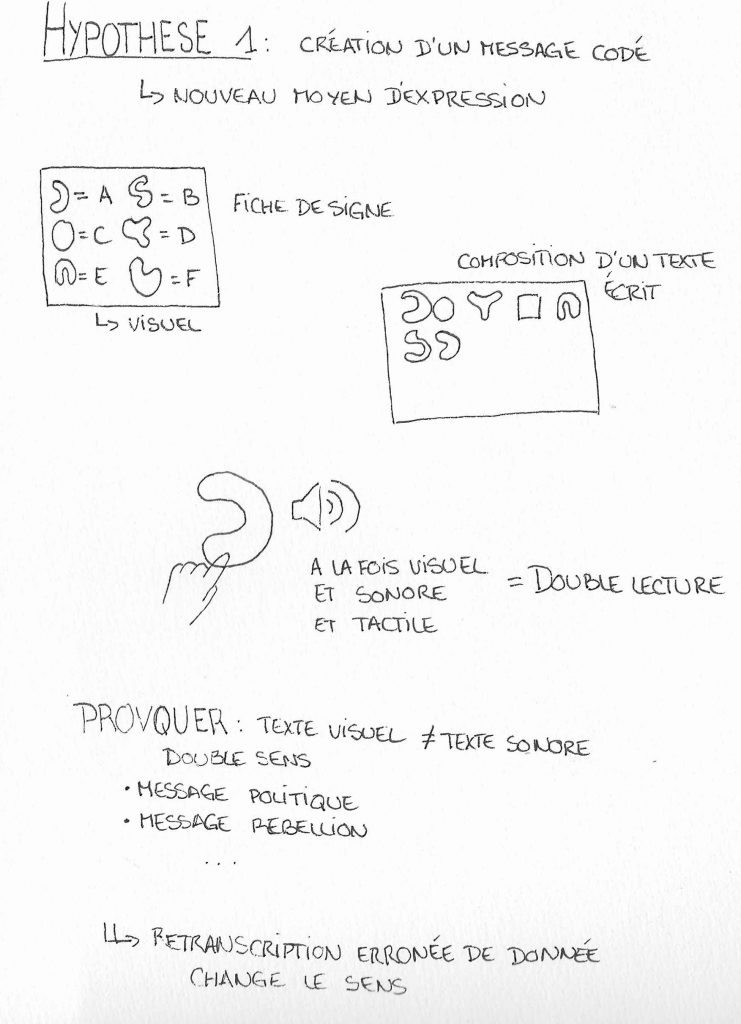 HYPOTHESE 1 : CRÉATION D'UN MESSAGE CODÉ
↳ NOUVEAU MOYEN D'EXPRESSION
= A = B
= C = D
= E = F
FICHE DE SIGNE
↳ VISUEL
COMPOSITION D'UN TEXTE
ÉCRIT
A LA FOIS VISUEL
ET SONORE
ET TACTILE
= DOUBLE LECTURE
PROVQUER : TEXTE VISUEL ≠ TEXTE SONORE
DOUBLE SENS
• MESSAGE POLITIQUE
• MESSAGE REBELLION
...
↳ RETRANSCRIPTION ERRONÉE DE DONNÉE
CHANGE LE SENS